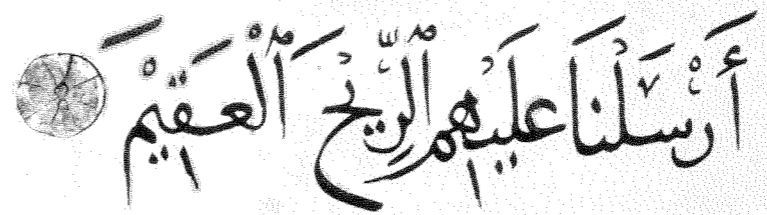 أَرْسَلْنَا عَلَيْهِمُ ٱلرِّيحَ ٱلْعَقِيمَ